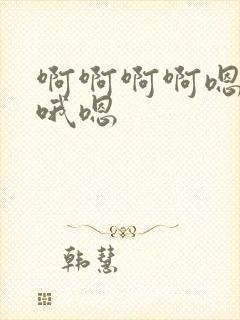 啊啊啊啊嗯
哦嗯
韩慧